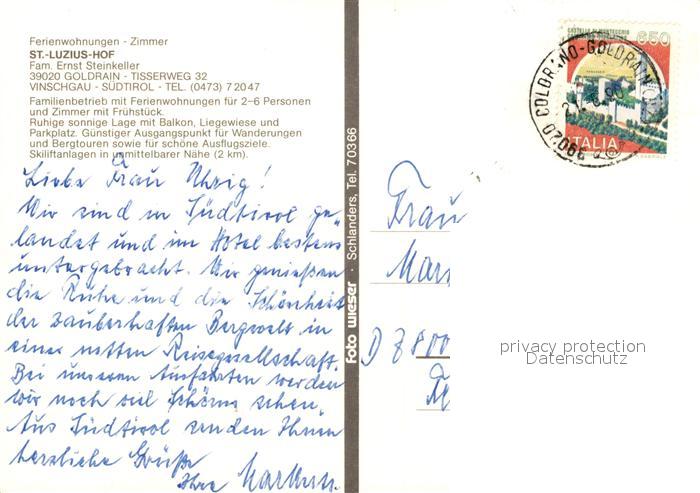 Ferienwohnungen - Zimmer
ST.-LUZIUS-HOF
Fam. Ernst Steinkeller
39020 GOLDRAIN - TISSERWEG 32
VINSCHGAU - SÜDTIROL - TEL. (0473) 7 20 47
Familienbetrieb mit Ferienwohnungen für 2-6 Personen
und Zimmer mit Frühstück.
Ruhige sonnige Lage mit Balkon, Liegewiese und
Parkplatz. Günstiger Ausgangspunkt für Wanderungen
und Bergtouren sowie für schöne Ausflugsziele.
Skiliftanlagen in unmittelbarer Nähe (2 km).
Liebe Frau Uhrig!
Wir sind in Südtirol ge-
landet und im Hotel bestens
untergebracht. Wir genießen
die Ruhe und die Schönheit
der zauberhaften Bergwelt in
einer netten Reisegesellschaft.
Bei unseren Ausfahrten werden
wir noch viel Schönes sehen.
Aus Südtirol senden Ihnen
herzliche Grüße
Ihre
foto wieser · Schlanders, Tel. 70366
650
ITALIA
COLDRANO-GOLDRAIN
Frau
D 7800
privacy protection
Datenschutz